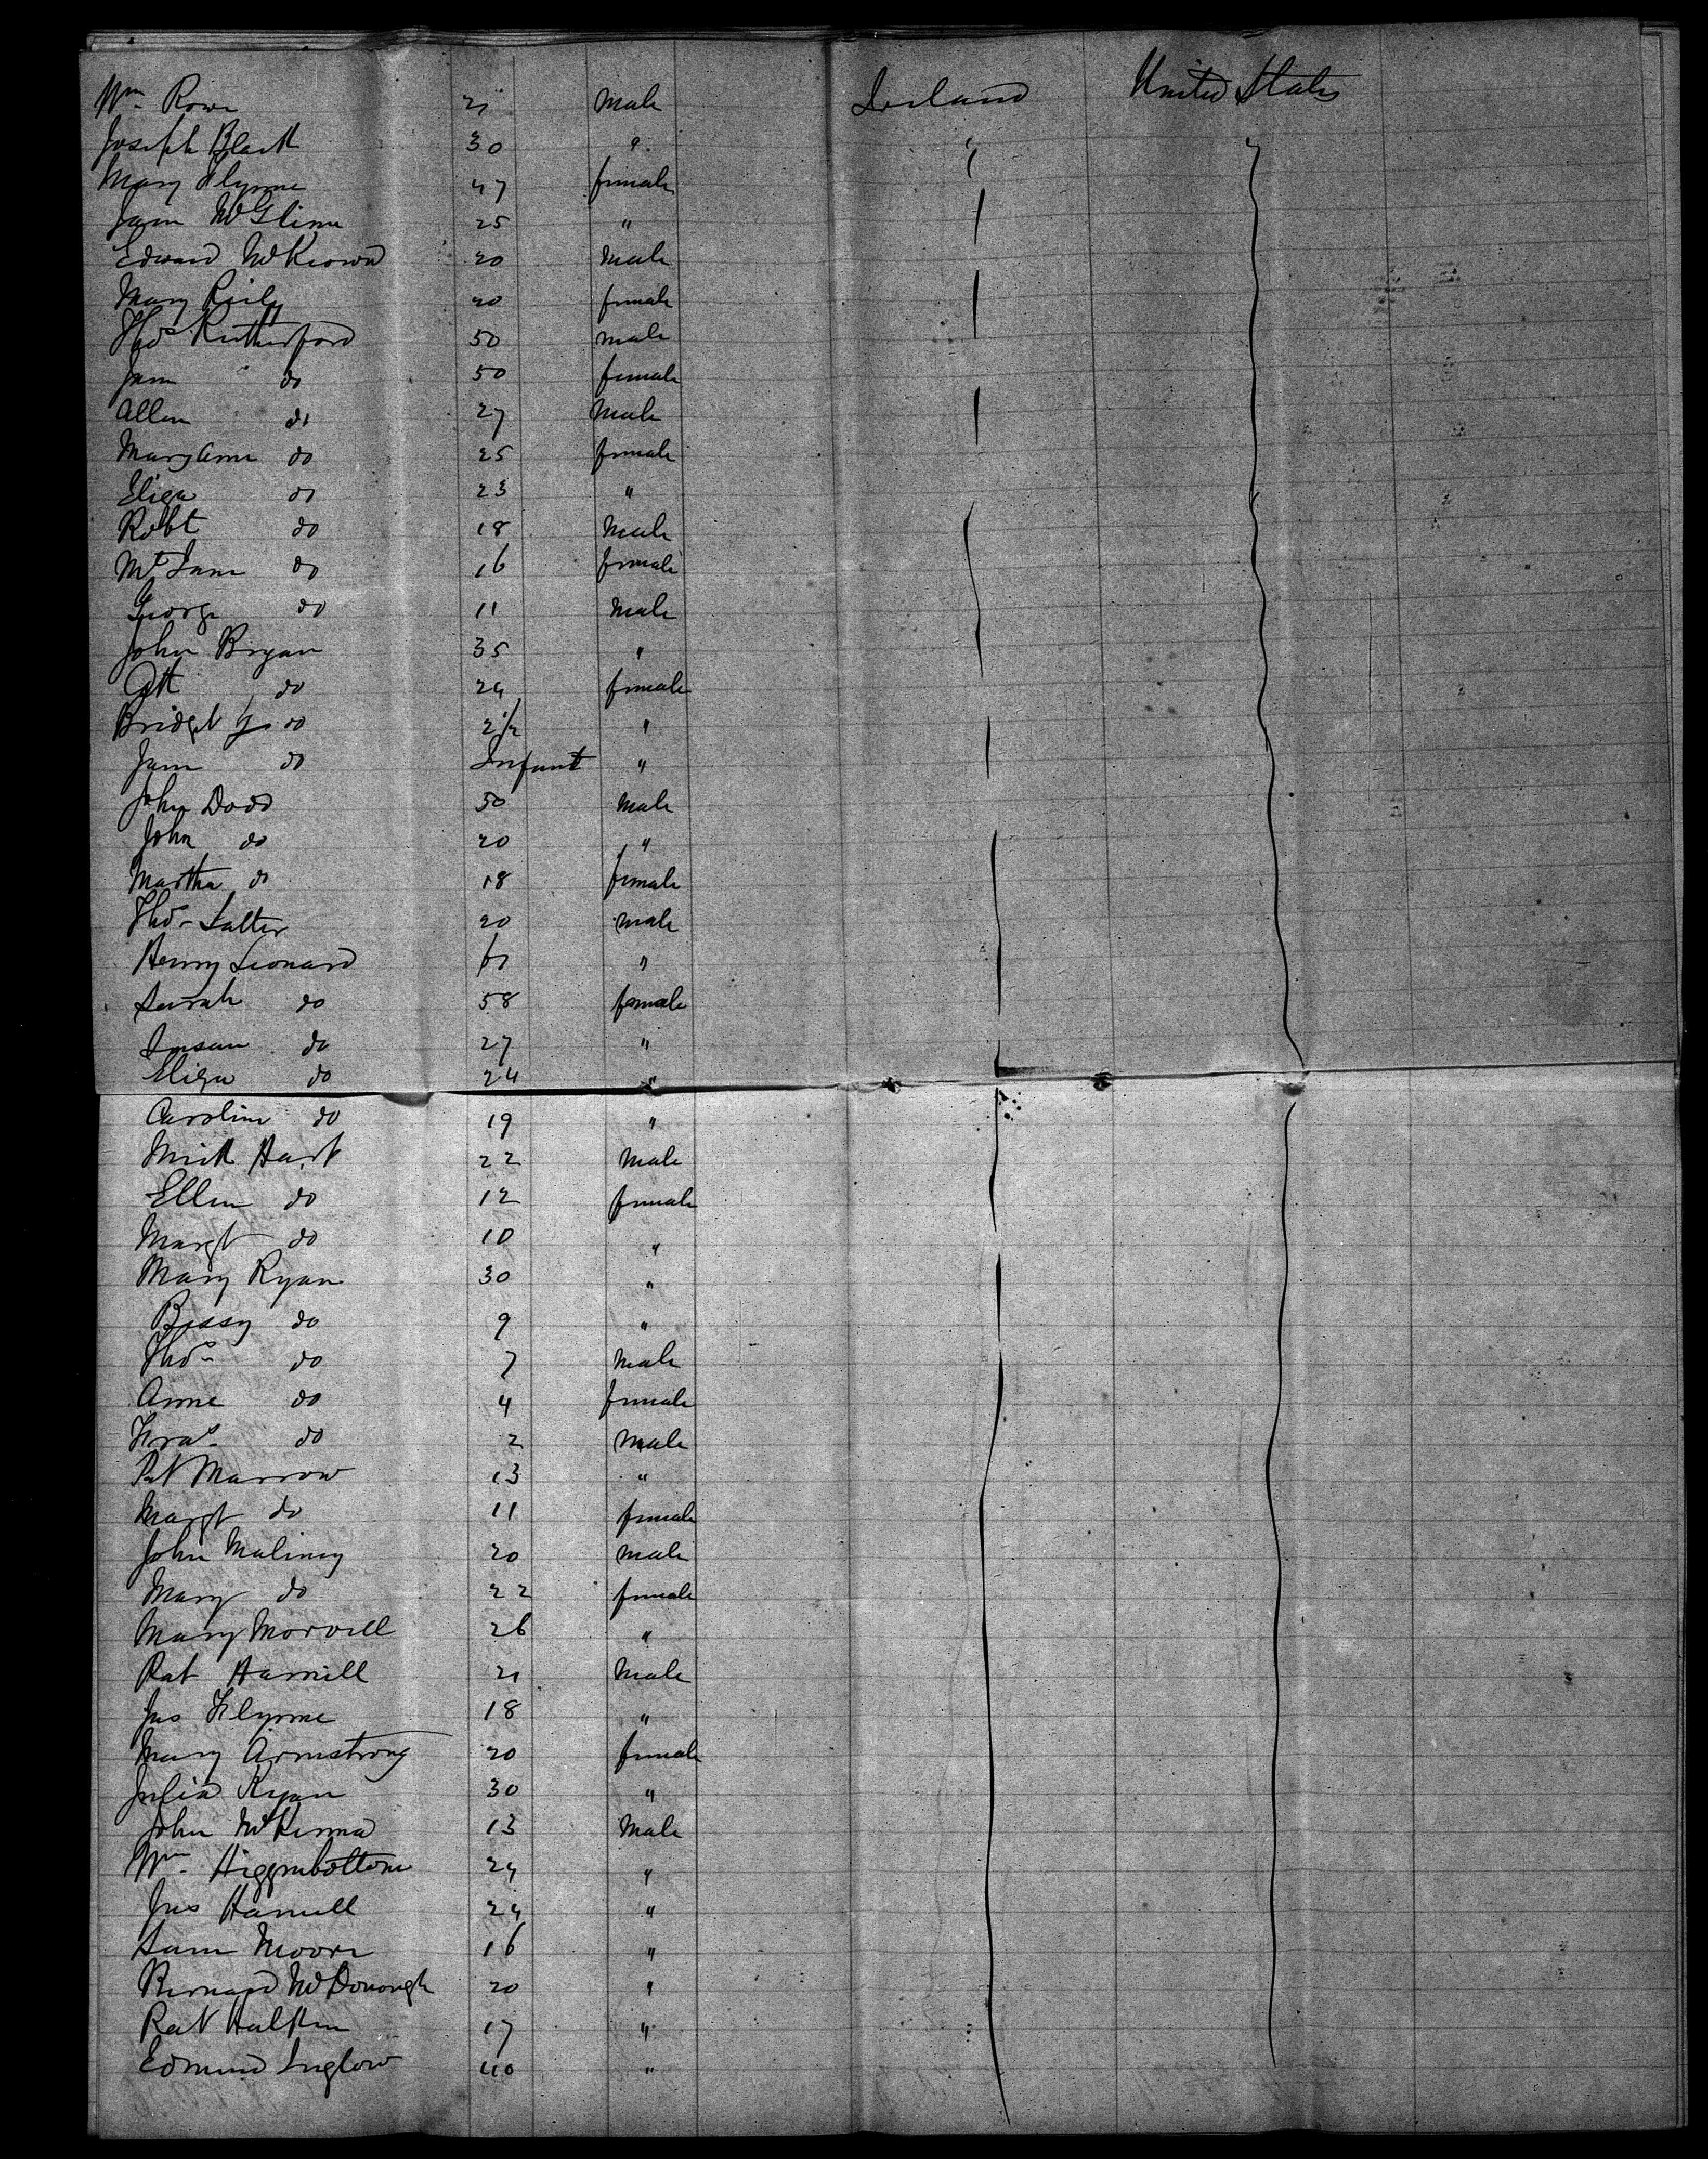 Wm Rowe 21 Male Ireland United States
Joseph Black 30 "
Mary Flynne 47 female
Jane McGlinn 25 "
Edward McKeown 20 Male
Mary Riely 20 female
Thos Rutherford 50 male
Jane do 50 female
Allen do 27 Male
Mary Anne do 25 female
Eliza do 23 "
Robt do 18 Male
Mt Jane do 16 female
George do 11 Male
John Bryan 35 "
do 24 female
Bridget do 2 1/2 "
Jane do Infant "
John Dodd 50 Male
John do 20 "
Martha do 18 female
Thos Salter 20 male
Henry Leonard "
Sarah do 58 female
Susan do 27 "
Eliza do 24 "
Caroline do 19 "
Mick Hart 22 Male
Ellen do 12 female
Margt do 10 "
Mary Ryan 30 "
Bessy do 9 "
Thos do 7 Male
Anne do 4 female
Fras do 2 Male
Pat Marrow 13 "
Margt do 11 female
John Maliney 20 male
Mary do 22 female
Mary Morvell 26 "
Pat Hamill 21 Male
Jas Flynne 18 "
Mary Armstrong 20 female
Julia Ryan 30 "
John McKenna 13 Male
Wm Higginbottom 24 "
Jas Hamill 24 "
Sam Moore 16 "
Bernard McDonough 20 "
Pat Halpin 17 "
Edmund Inglow 40 "